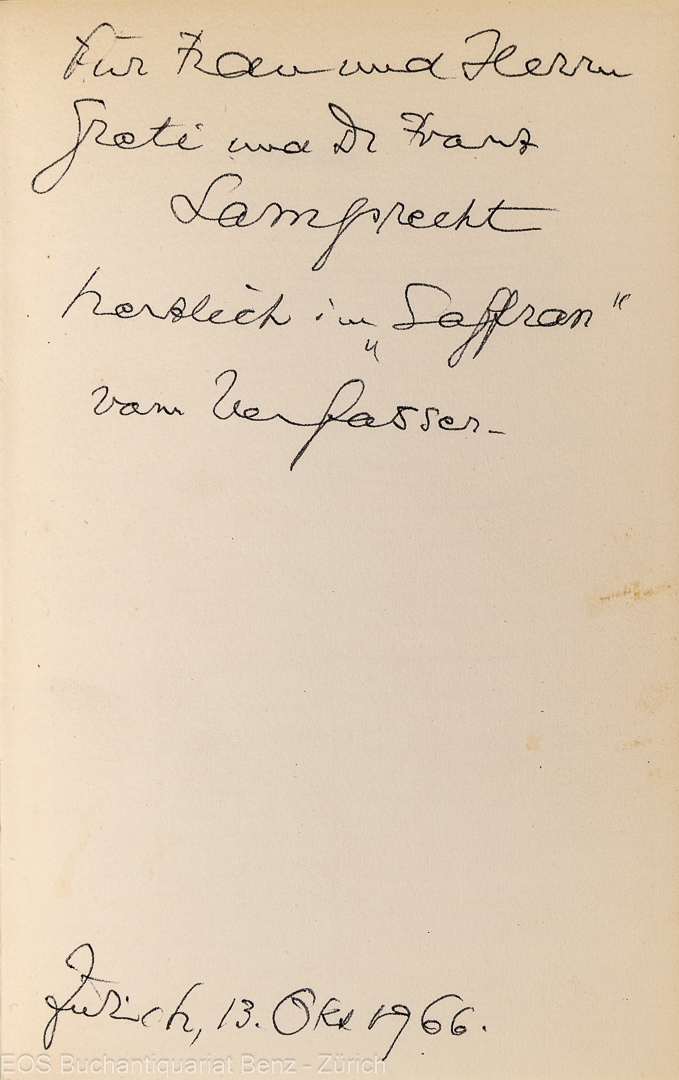 Für Frau und Herrn
Greti und Dr Franz
Lamprecht
herzlich im „Saffran"
vom Verfasser-
Zürich, 13. Okt 1966.
EOS Buchantiquariat Benz - Zürich